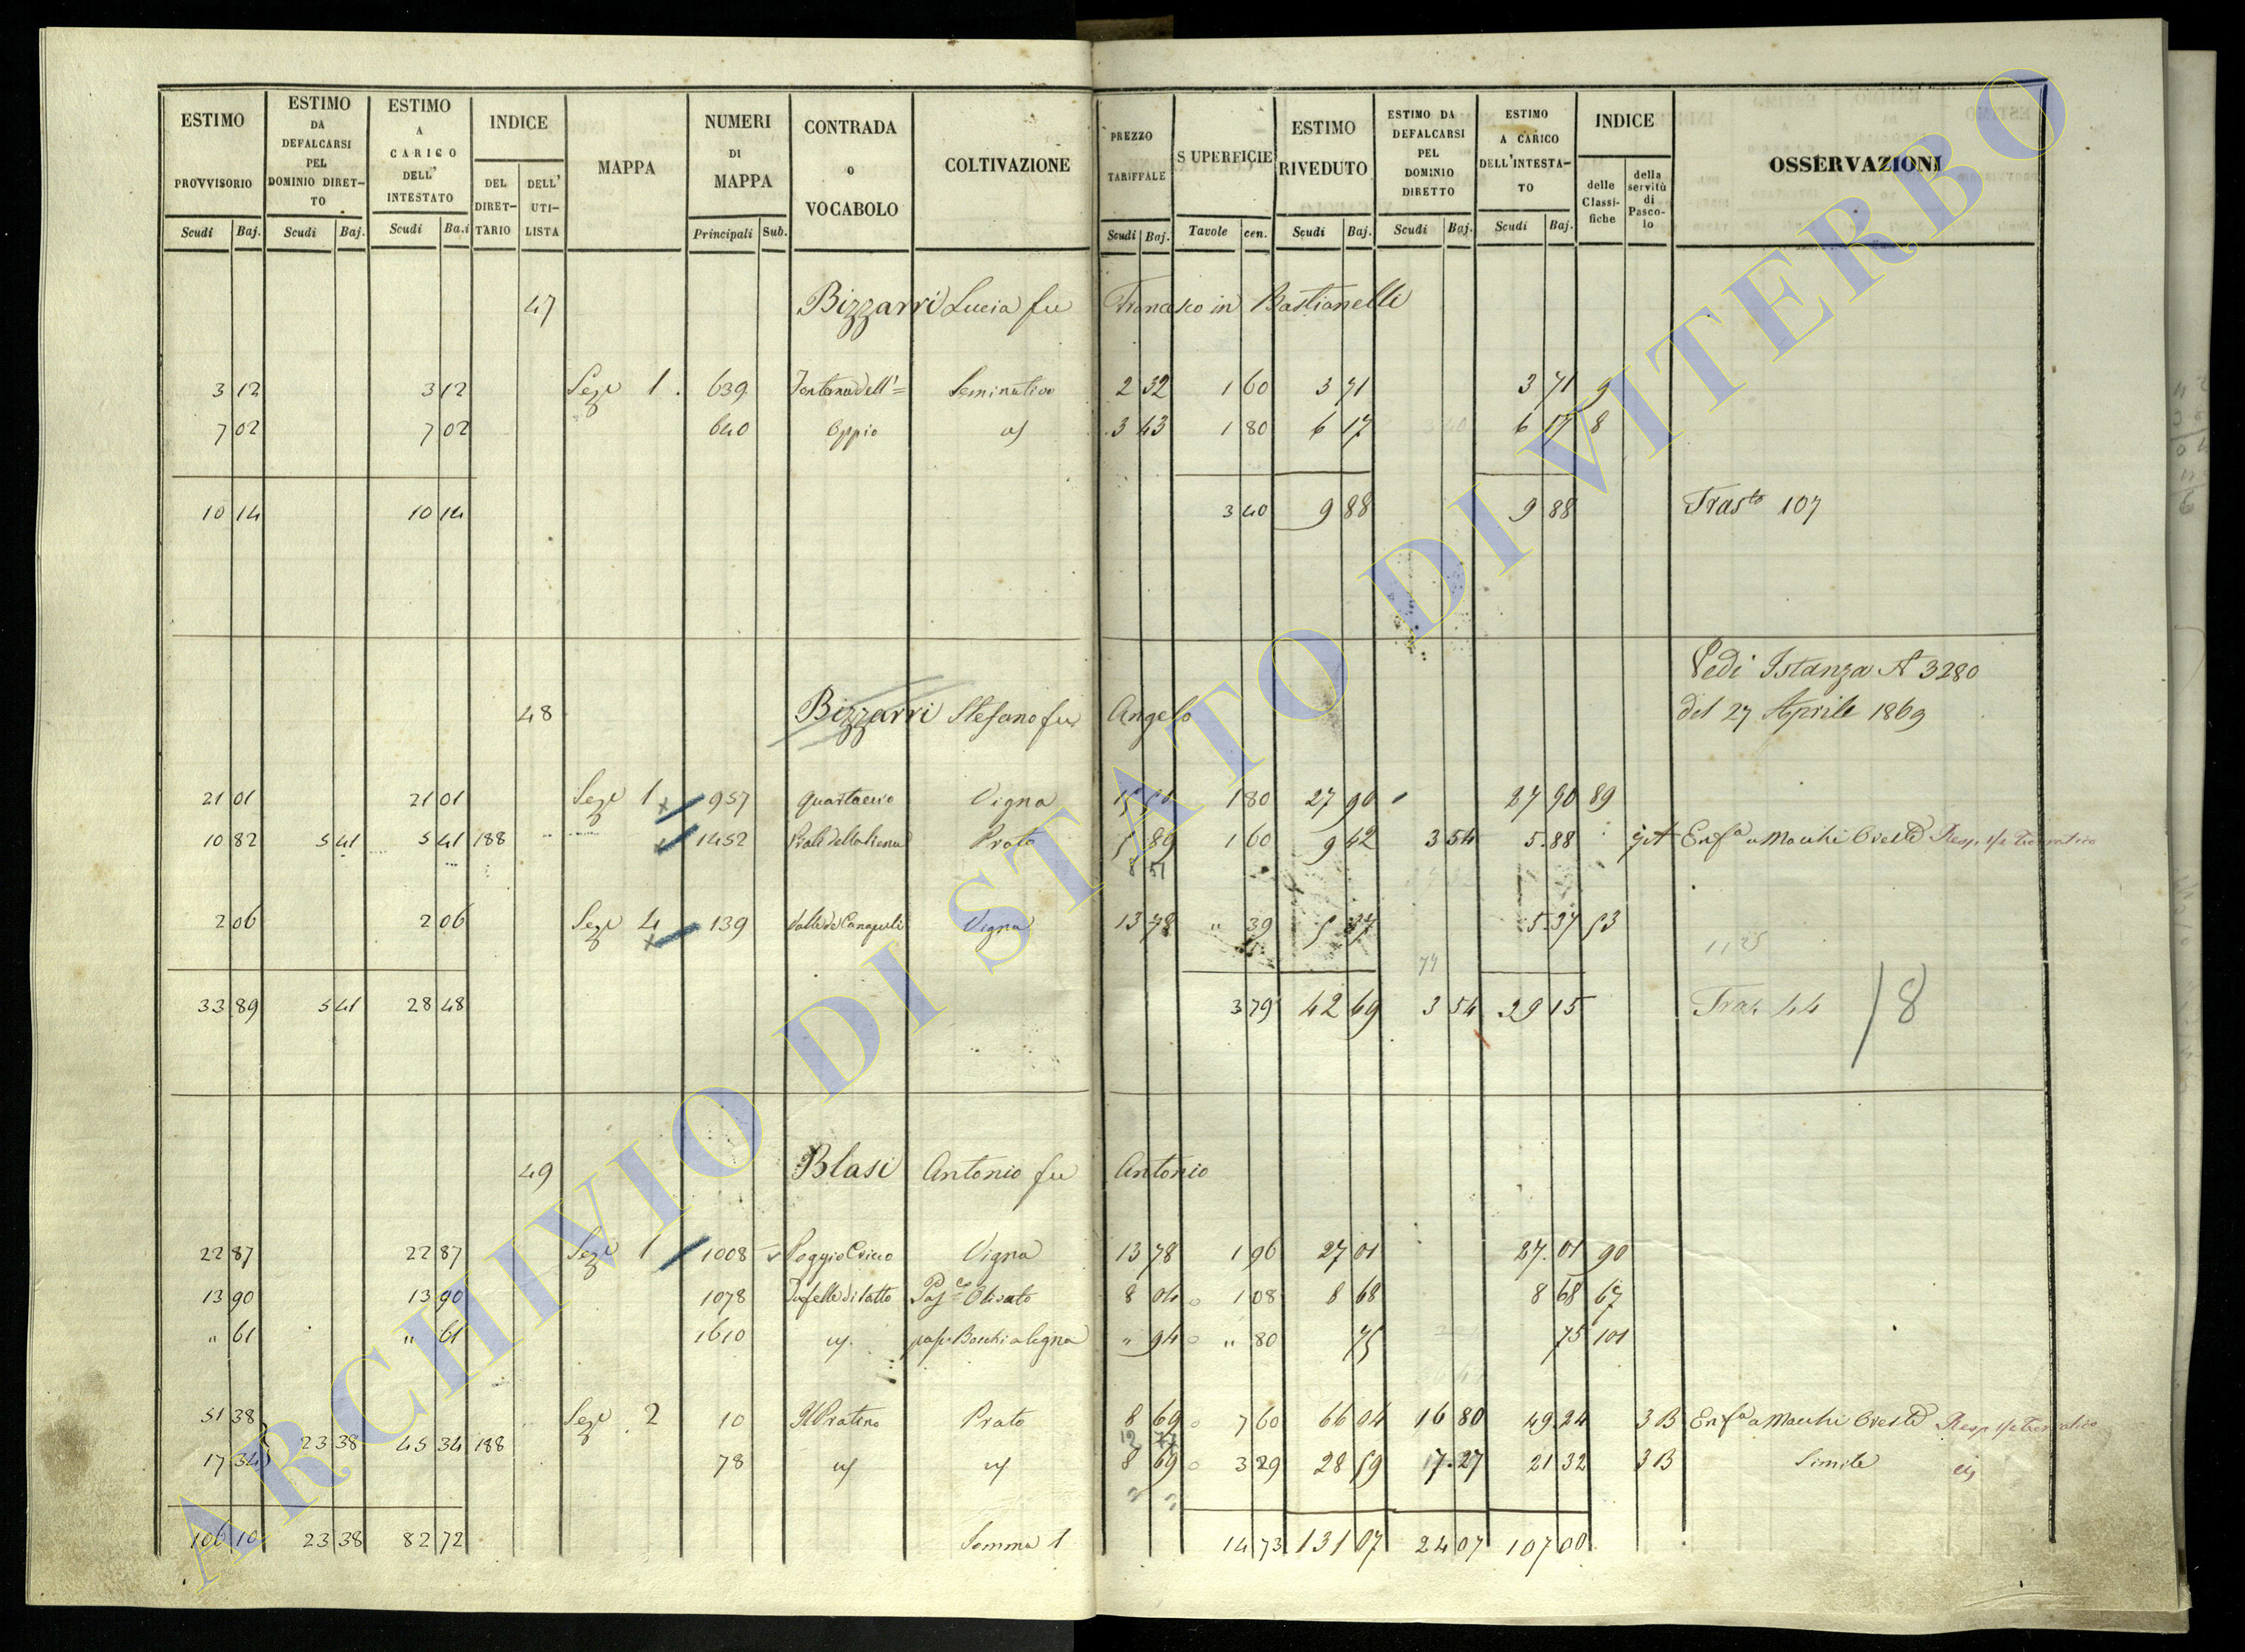 ESTIMO PROVVISORIO Scudi Baj. | ESTIMO DA DEFALCARSI PEL DOMINIO DIRET-TO Scudi Baj. | ESTIMO A CARICO DELL' INTESTATO Scudi Ba.i | INDICE DEL DIRET-TARIO DELL' UTI-LISTA | MAPPA | NUMERI DI MAPPA Principali Sub. | CONTRADA o VOCABOLO | COLTIVAZIONE | PREZZO TARIFFALE Scudi Baj. | SUPERFICIE Tavole cen. | ESTIMO RIVEDUTO Scudi Baj. | ESTIMO DA DEFALCARSI PEL DOMINIO DIRETTO Scudi Baj. | ESTIMO A CARICO DELL'INTESTA-TO Scudi Baj. | INDICE delle Classi-fiche della servitù di Pasco-lo | OSSERVAZIONI
47 Bizzarri Lucia fu Francesco in Bastianelli
3 12 3 12 Seze 1. 639 Fontana dell'= Seminativo 2 32 1 60 3 71 3 71 9
7 02 7 02 640 Oppio 3 43 1 80 6 17 6 17 8
10 14 10 14 3 40 9 88 9 88 Trasto 107
Vedi Istanza N 3280
48 Bizzarri Stefano fu Angelo del 27 Aprile 1869
21 01 21 01 Seze 1 957 Quartaccio Vigna 15 50 1 80 27 90 27 90 89
10 82 5 41 5 41 188 1452 Prato 5 89 1 60 9 42 3 54 5.88 Enfa a Macchi Oreste
8 51
2 06 2 06 Seze 4 139 Vigna 13 78 " 39 5 37 5.37 53
1125
74
33 89 5 41 28 48 3 79 42 69 3 54 39 15 Tras. 44 /8
49 Blasi Antonio fu Antonio
22 87 22 87 Seze 1 1008 Poggio Vigna 13 78 1 96 27 01 27.01 90
13 90 13 90 1078 Olivato 8 04 1 08 8 68 8 68 67
" 61 " 61 1610 Boschi a legna " 94 " 80 75 75 101
51 38 Seze 2 10 Il Pratino Prato 8 69 7 60 66 04 16 80 49.24 3 B Enfa a Macchi Oreste
23 38 45 34 188
17 34 78 8 69 3 29 28 59 7.27 21 32 3 B Simile
106 10 23 38 82 72 Somma 1 14 73 131 07 24 07 107 00
ARCHIVIO DI STATO DI VITERBO